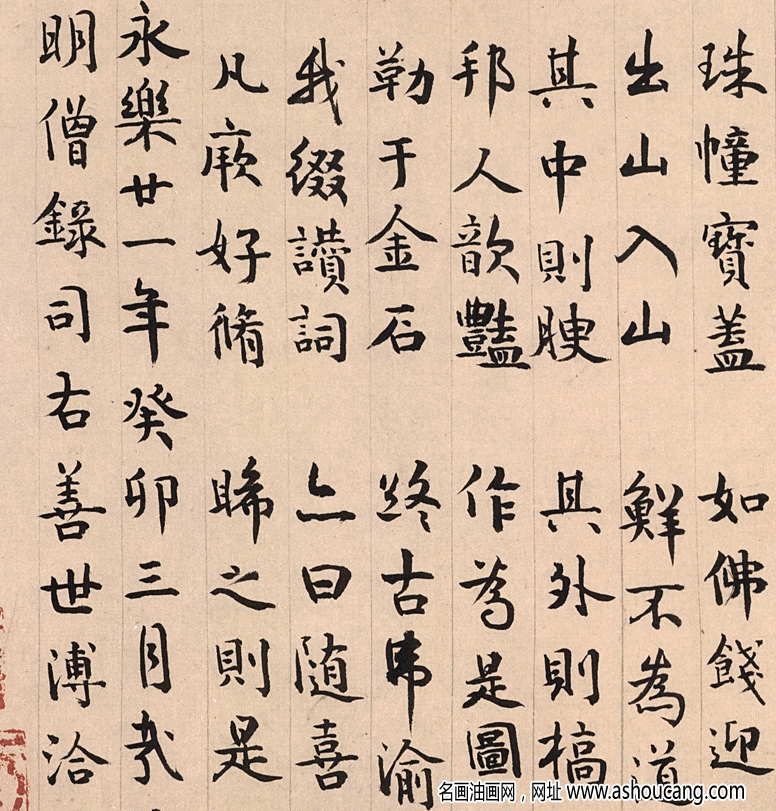 珠幢寶蓋 如佛餞迎
出山入山 鮮不為道
其中則腴 其外則槁
邦人歆豔 作為是圖
勒于金石 終古弗渝
我綴讚詞 亦曰随喜
凡厥好脩 睎之則是
永樂廿一年癸卯三月
明僧錄司右善世溥洽
名画油画网，网址 www.ashoucang.com